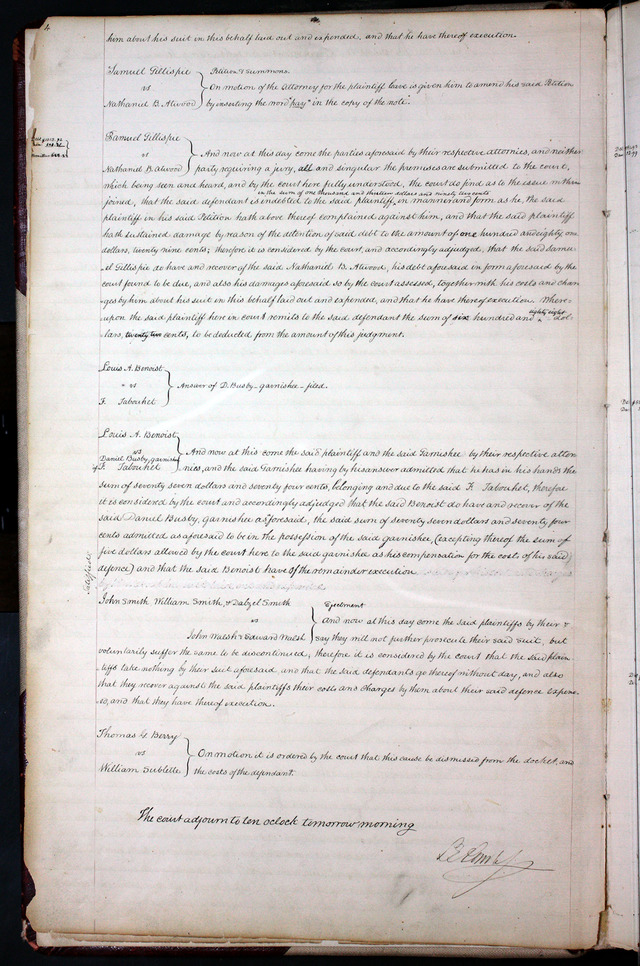 4
him about his suit in this behalf laid out and expended, and that he have thereof execution.
Samuel Gillispie
vs
Nathaniel B. Atwood
Petition & Summons.
On motion of the Attorney for the plaintiff leave is given him to amend his said Petition
by inserting the word "pay" in the copy of the note.
Samuel Gillispie
vs
Nathaniel B. Atwood
And now at this day come the parties aforesaid by their respective attornies, and neither
party requiring a jury, all and singular the premises are submitted to the court,
which being seen and heard, and by the court here fully understood, the court do find as to the issue within
in the sum of one thousand and thirteen dollars and ninety two cents
joined, that the said defendant is indebted to the said plaintiff, in manner and form as he, the said
plaintiff in his said Petition hath above thereof complained against him, and that the said plaintiff
hath sustained damage by reason of the detention of said debt to the amount of one hundred and eighty one
dollars, twenty nine cents; therefore it is considered by the court, and accordingly adjudged, that the said Samu-
el Gillispie do have and recover of the said Nathaniel B. Atwood, his debt aforesaid in form aforesaid by the
court found to be due, and also his damages aforesaid so by the court assessed, together with his costs and char-
ges by him about his suit in this behalf laid out and expended, and that he have thereof execution. Where-
upon the said plaintiff here in court remits to the said defendant the sum of six hundred and eighty eight dol-
lars, twenty two cents, to be deducted from the amount of this judgment.
Louis A. Benoist
vs
F. Tabouhet
Answer of D. Busby - garnishee - filed.
Louis A. Benoist
vs
Daniel Busby, garnishee
of F. Tabouhet
And now at this come the said plaintiff and the said Garnishee by their respective attor-
nies, and the said Garnishee having by his answer admitted that he has in his hands the
sum of seventy seven dollars and seventy four cents, belonging and due to the said F. Tabouhet, therefore
it is considered by the court and accordingly adjudged that the said Benoist do have and recover of the
said Daniel Busby, Garnishee as aforesaid, the said sum of seventy seven dollars and seventy four
cents admitted as aforesaid to be in the possession of the said garnishee, (excepting thereof the sum of
five dollars allowed by the court here to the said garnishee as his compensation for the costs of his said
defence) and that the said Benoist have of the remainder execution
Satisfied
John Smith William Smith, & Dalzel Smith
vs
John Walsh & Edward Walsh
Ejectment
And now at this day come the said plaintiffs by their &
say they will not further prosecute their said suit, but
voluntarily suffer the same to be discontinued, therefore it is considered by the court that the said plain-
tiffs take nothing by their suit aforesaid, and that the said defendants go thereof without day, and also
that they recover against the said plaintiffs their costs and charges by them about their said defence expen-
ded, and that they have thereof execution.
Thomas G. Berry
vs
William Sublette
On motion it is ordered by the court that this cause be dismissed from the docket, and
the costs of the defendant.
The court adjourn to ten oclock tomorrow morning